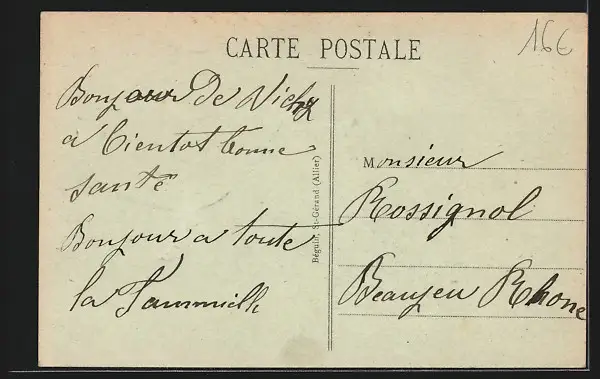 CARTE POSTALE
16€
Bonjour de Vichy
a bientot bonne
santé
Bonjour a toute
la Fammille
Béguin, St-Gérand (Allier)
Monsieur
Rossignol
Beaujeu Rhone